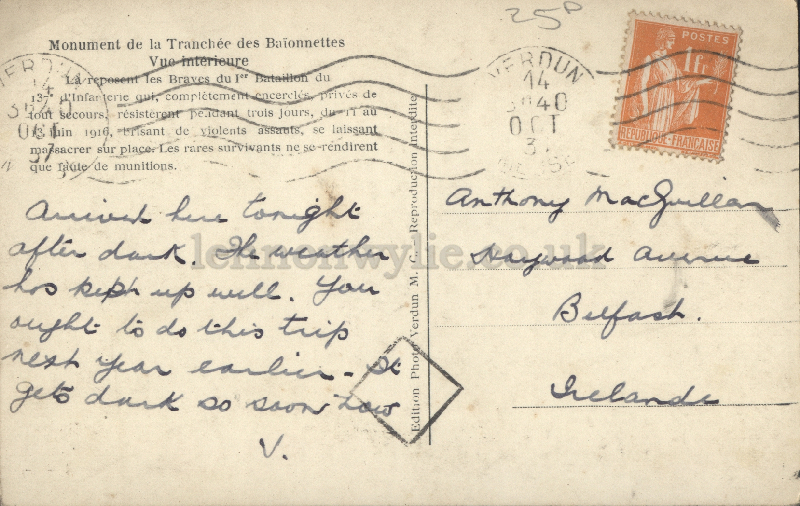 25D
Monument de la Tranchée des Baïonnettes
Vue intérieure
Là reposent les Braves du 1er Bataillon du
d'Infanterie qui, complètement encerclés, privés de
tout secours, résistèrent pendant trois jours, du 11 au
13 Juin 1916, brisant de violents assauts, se laissant
massacrer sur place. Les rares survivants ne se rendirent
que faute de munitions.
VERDUN
14
OCT
37
VERDUN
14
40
OCT
3
MEUSE
POSTES
1 Fr
REPUBLIQUE-FRANÇAISE
Edition Photo Verdun M. C. Reproduction Interdite
Arrived here tonight
after dark. The weather
has kept up well. You
ought to do this trip
next year earlier - It
gets dark so soon now
V.
Anthony MacGuillan
Haywood Avenue
Belfast.
Irelande
lennonwylie.co.uk